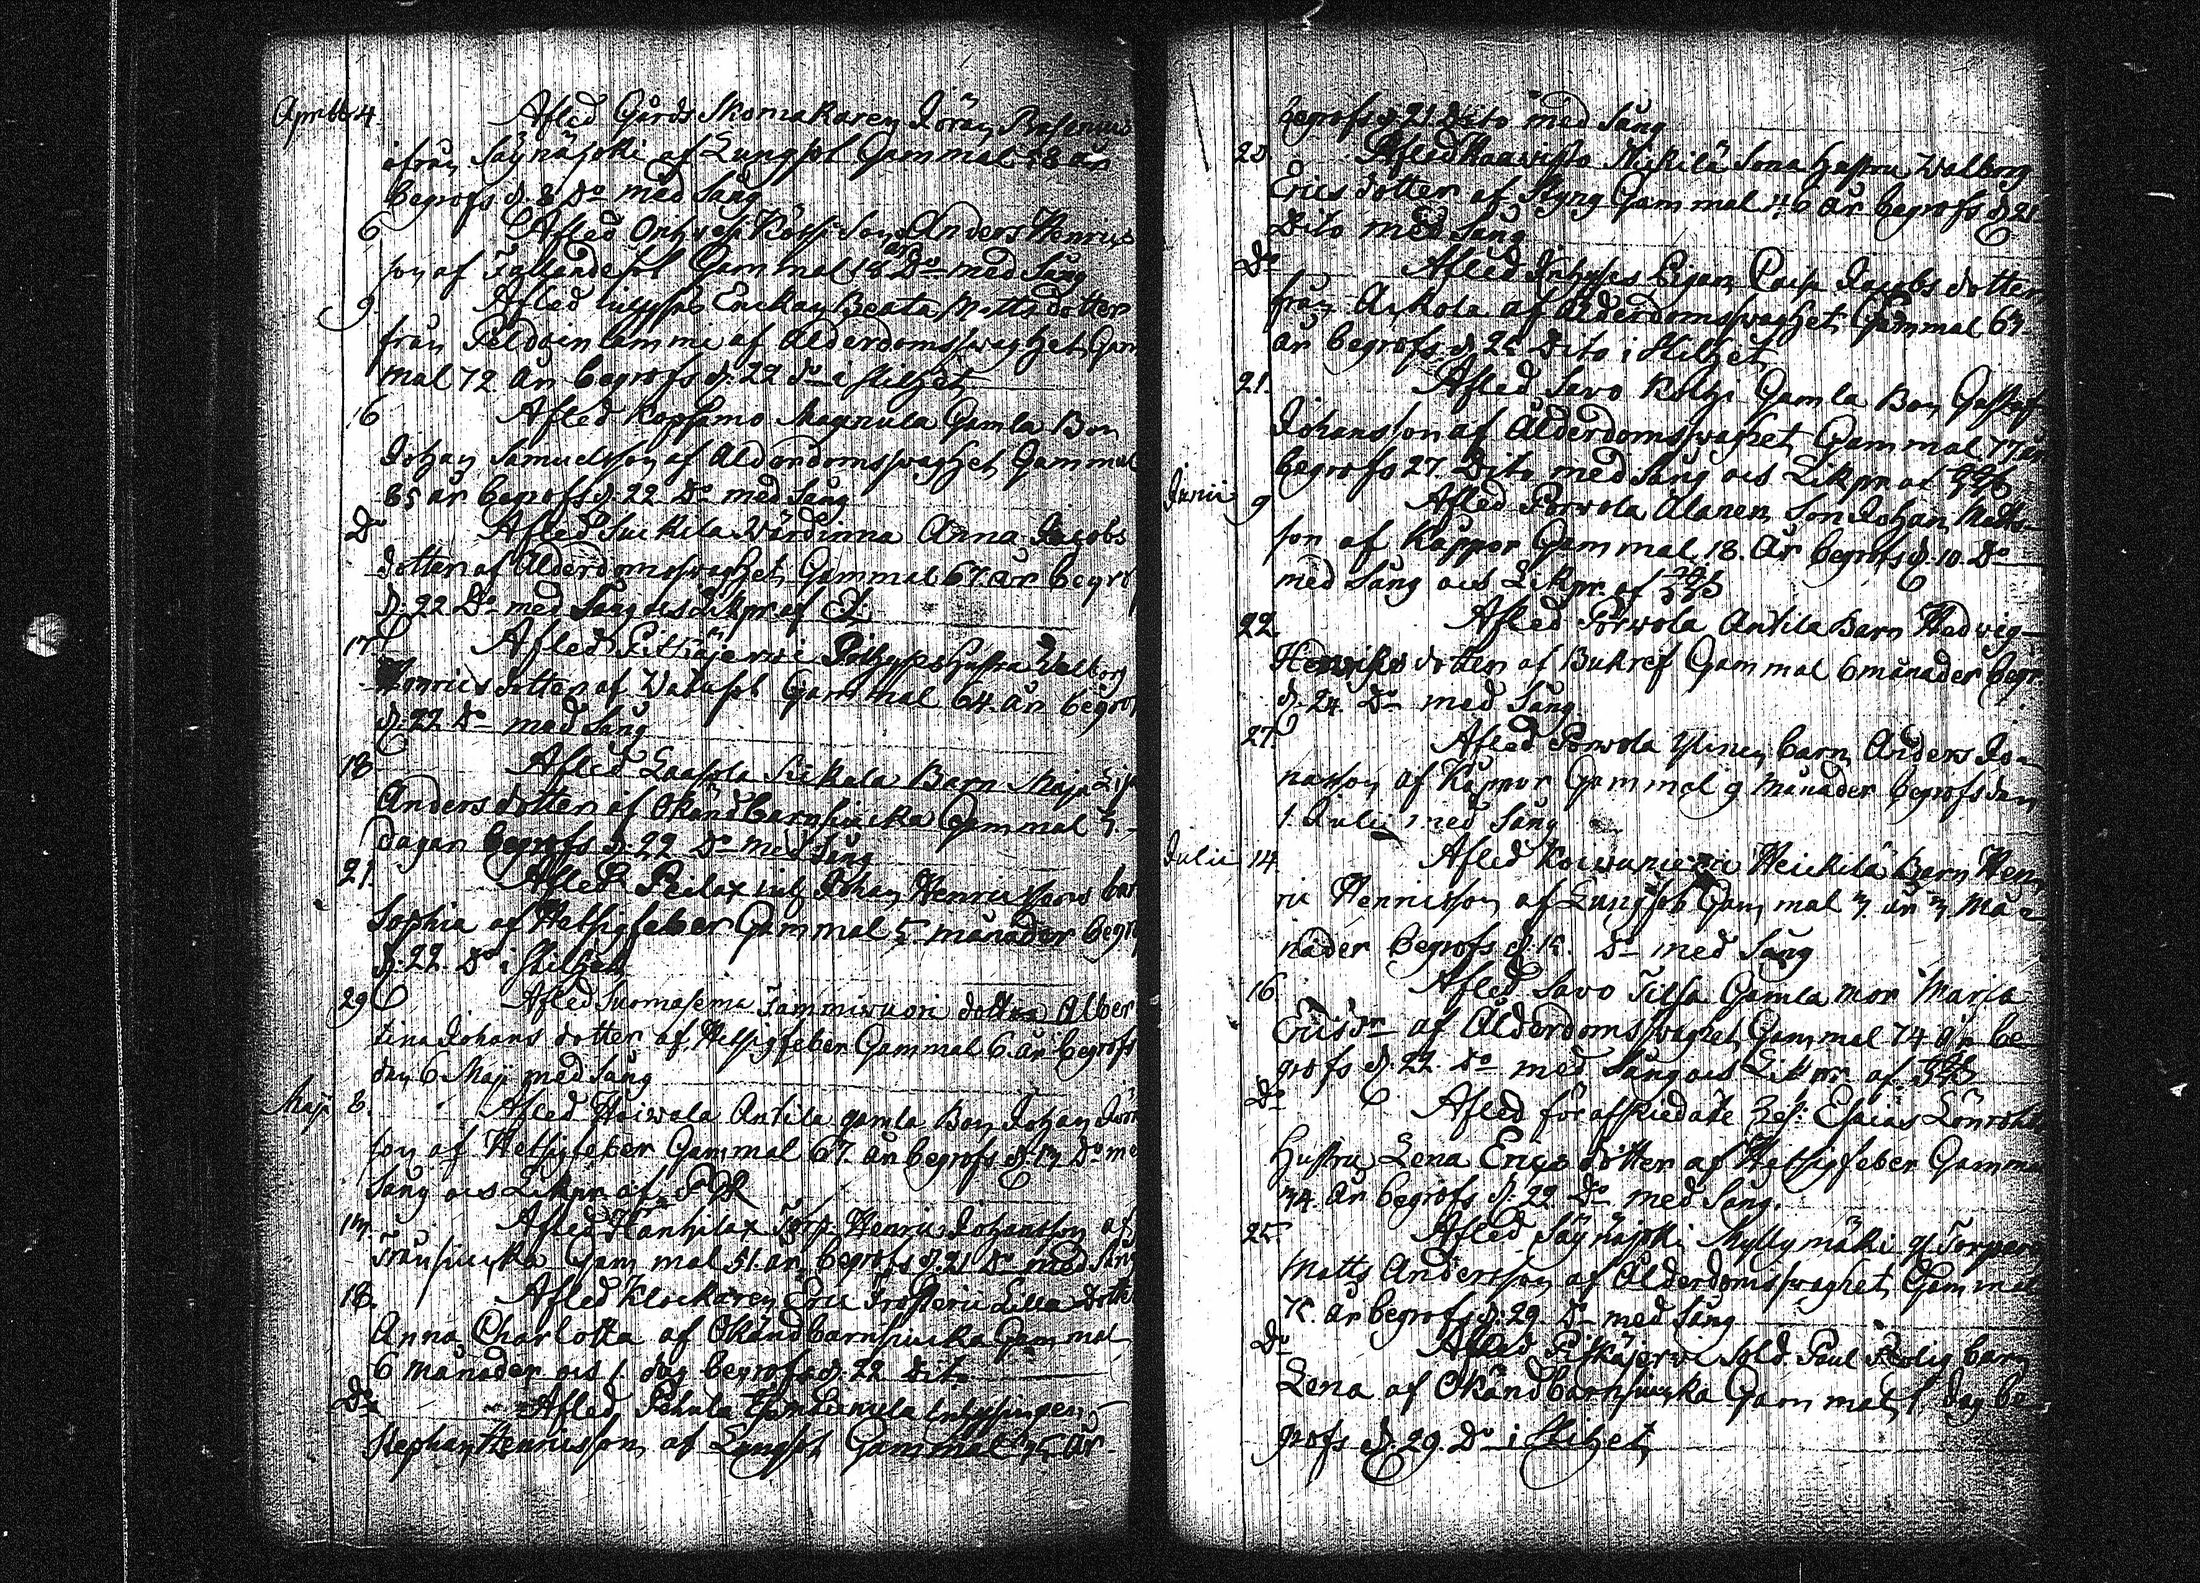 Aprill 4. Afled Gårds Skomakaren Jöran
ifrån Säynäjoki af Lungsot Gammal 58 år
begrofs d. 8 Do med Sång
6 Afled Köhi Son Anders Henrics
son af Fallandesot Gammal 18 år Do med Sång
9. Afled Enckan Beata Mattsdotter
från Peldoin lammi af Ålderdomsswaghet Gam
mal 72 år begrofs d. 22 Do i stilhet
16 Afled Kopsamo Magnula Gamla Bon
Johan Samuelsson af Ålderdomsswaghet Gammal
85 år begrofs d. 22 Do med Sång
Do Afled Suckila Wärdinna Anna Jacobs
dotter af Ålderdomsswaghet Gammal 67. år begrof
d. 22 Do med Sång och Likpr. af
17 Afled Pitkäjerwi Hustru Walborg
Henrics dotter af Watusot Gammal 64. år begrof
d. 22. Do med Sång
18 Afled Laasola Sickala Barn Maja Lisa
Anders dotter af Okänd barnsiucka Gammal 3
dagar begrofs d. 22 Do med Sång
21. Afled Peilax Johan Henricssons bar
Sophia af Hetsigfeber Gammal 5 månader begr
d. 22. Do i Stilhet
29 Afled Suomasema Tammiwuori dotter Alber
tina Johans dotter af Hetsigfeber Gammal 6 år begrofs
den 6 Maji med Sång
Maji 8. Afled Hoiwala Antila gamla Bon Johan
son af Hetsigfeber Gammal 67. år begrofs d. 13 Do me
Sång och Likpr. af
13. Afled Torp. Henric Johansson af
Gammal 51. år begrofs d. 21 Do med Sång
18. Afled Klockaren Eric Lilla dotter
Anna Charlotta af Okänd barnsiucka Gammal
6 månader och 1. dag begrofs d. 22 Dito
Do Afled Pehula
Stephan Henricsson af Lungsot Gammal år
begrofs d. 21 Dito med Sång
20 Afled Mickilä Sons Hustru Walborg
Erics dotter af Styng Gammal 46 år begrofs d. 21
Dito med Sång
Do Afled Pigan Caisa Jacobs dotter
från Arkola af Ålderdomsswaghet Gammal 63
år begrofs d. 25 Dito i Stilhet
21. Afled Savo Kolhi Gamla Bon Gustaf
Johansson af Ålderdomsswaghet Gammal 77 år
begrofs 27. Dito med Sång och Likpr. af
Junii 9 Afled Porwola Alanen Son Johan Matts
son af Kåppor Gammal 18. år begrofs d. 10. Do
med Sång och Likpr. af
22. Afled Porwola Antila Barn Hedwig
Henrics dotter af Bukref Gammal 6 månader begr.
d. 24. Do med Sång
27. Afled Porwola Ylinen barn Anders Jo
hansson af Kåppor Gammal 9 månader begrofs den
1. Julii med Sång
Julii 14. Afled Koiwuniemi Heickilä Barn Hen
ric Henricsson af Lungsot Gammal 3. år 3 Må
nader begrofs d. 15. Do med Sång
16. Afled Savo Tilsa Gamla mor Maria
Ericsdr af Ålderdomsswaghet Gammal 74 år be
grofs d. 22. Do med Sång och Likpr. af
Do Afled för afskiedade Esaias Lönroths
Hustru Lena Erics dotter af Hetsigfeber Gamma
34. år begrofs d. 22 Do med Sång.
25. Afled Säynäjoki Myllymäki Torpare
Matts Andersson af Ålderdomsswaghet Gammal
75. år begrofs d. 29 Do med Sång
Do Afled Pitkäjerwi Sold. Paul Rolig barn
Lena af Okänd barnsiucka Gammal 1. dag be
grofs d. 29. Do i Stilhet